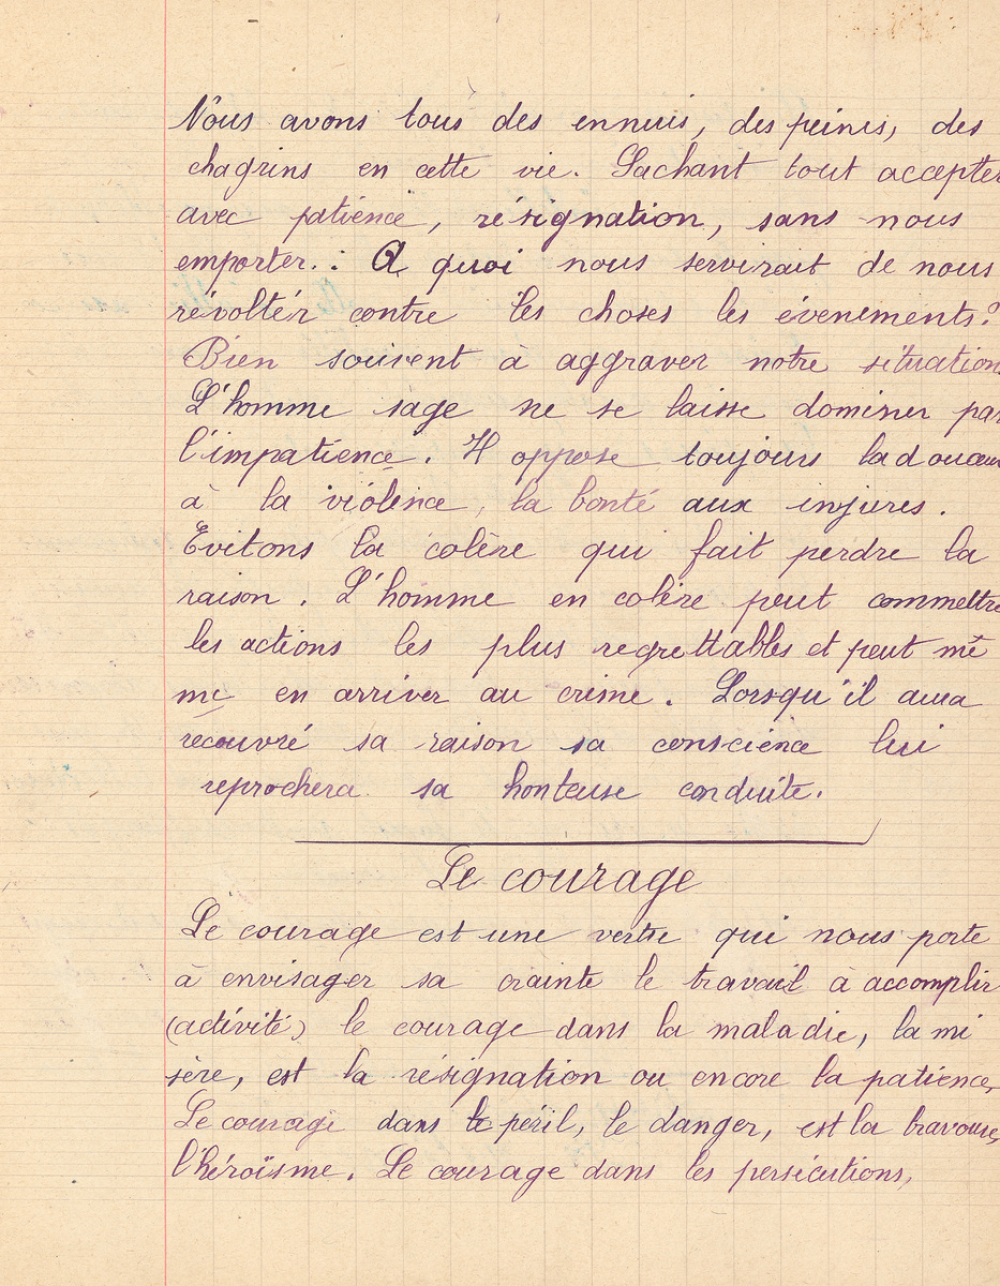 Nous avons tous des ennuis, des peines, des
chagrins en cette vie. Sachant tout accepter
avec patience, résignation, sans nous
emporter. : A quoi nous servirait de nous
révolter contre les choses les évenements?
Bien souvent à aggraver notre situation.
L'homme sage ne se laisse dominer par
l'impatience. Il oppose toujours la douceur
à la violence, la bonté aux injures.
Evitons la colère qui fait perdre la
raison. L'homme en colère peut commettre
les actions les plus regrettables et peut mê
me en arriver au crime. Lorsqu'il aura
recouvré sa raison sa conscience lui
reprochera sa honteuse conduite.
Le courage
Le courage est une vertu qui nous porte
à envisager sa crainte le travail à accomplir
(activité) le courage dans la maladie, la mi
sère, est la résignation ou encore la patience,
Le courage dans le péril, le danger, est la bravoure,
l'héroïsme. Le courage dans les persécutions,